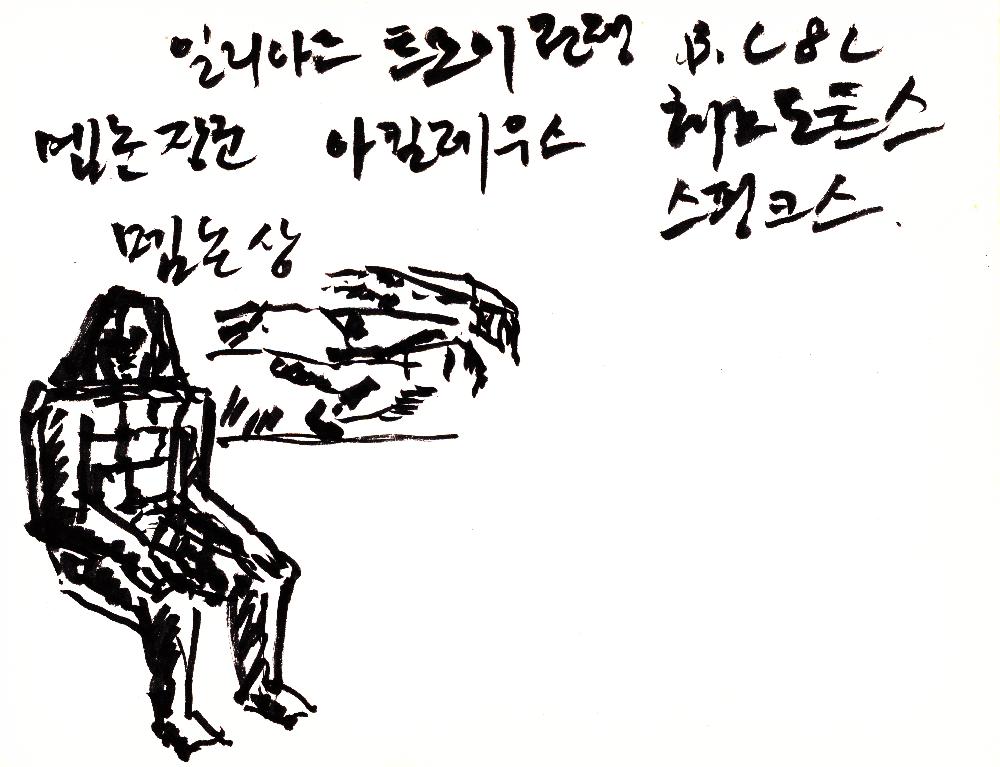 일리아스 트로이 전쟁 B.C 8C
멤논 장군 아킬레우스 헤로도토스
스핑크스.
멤논상